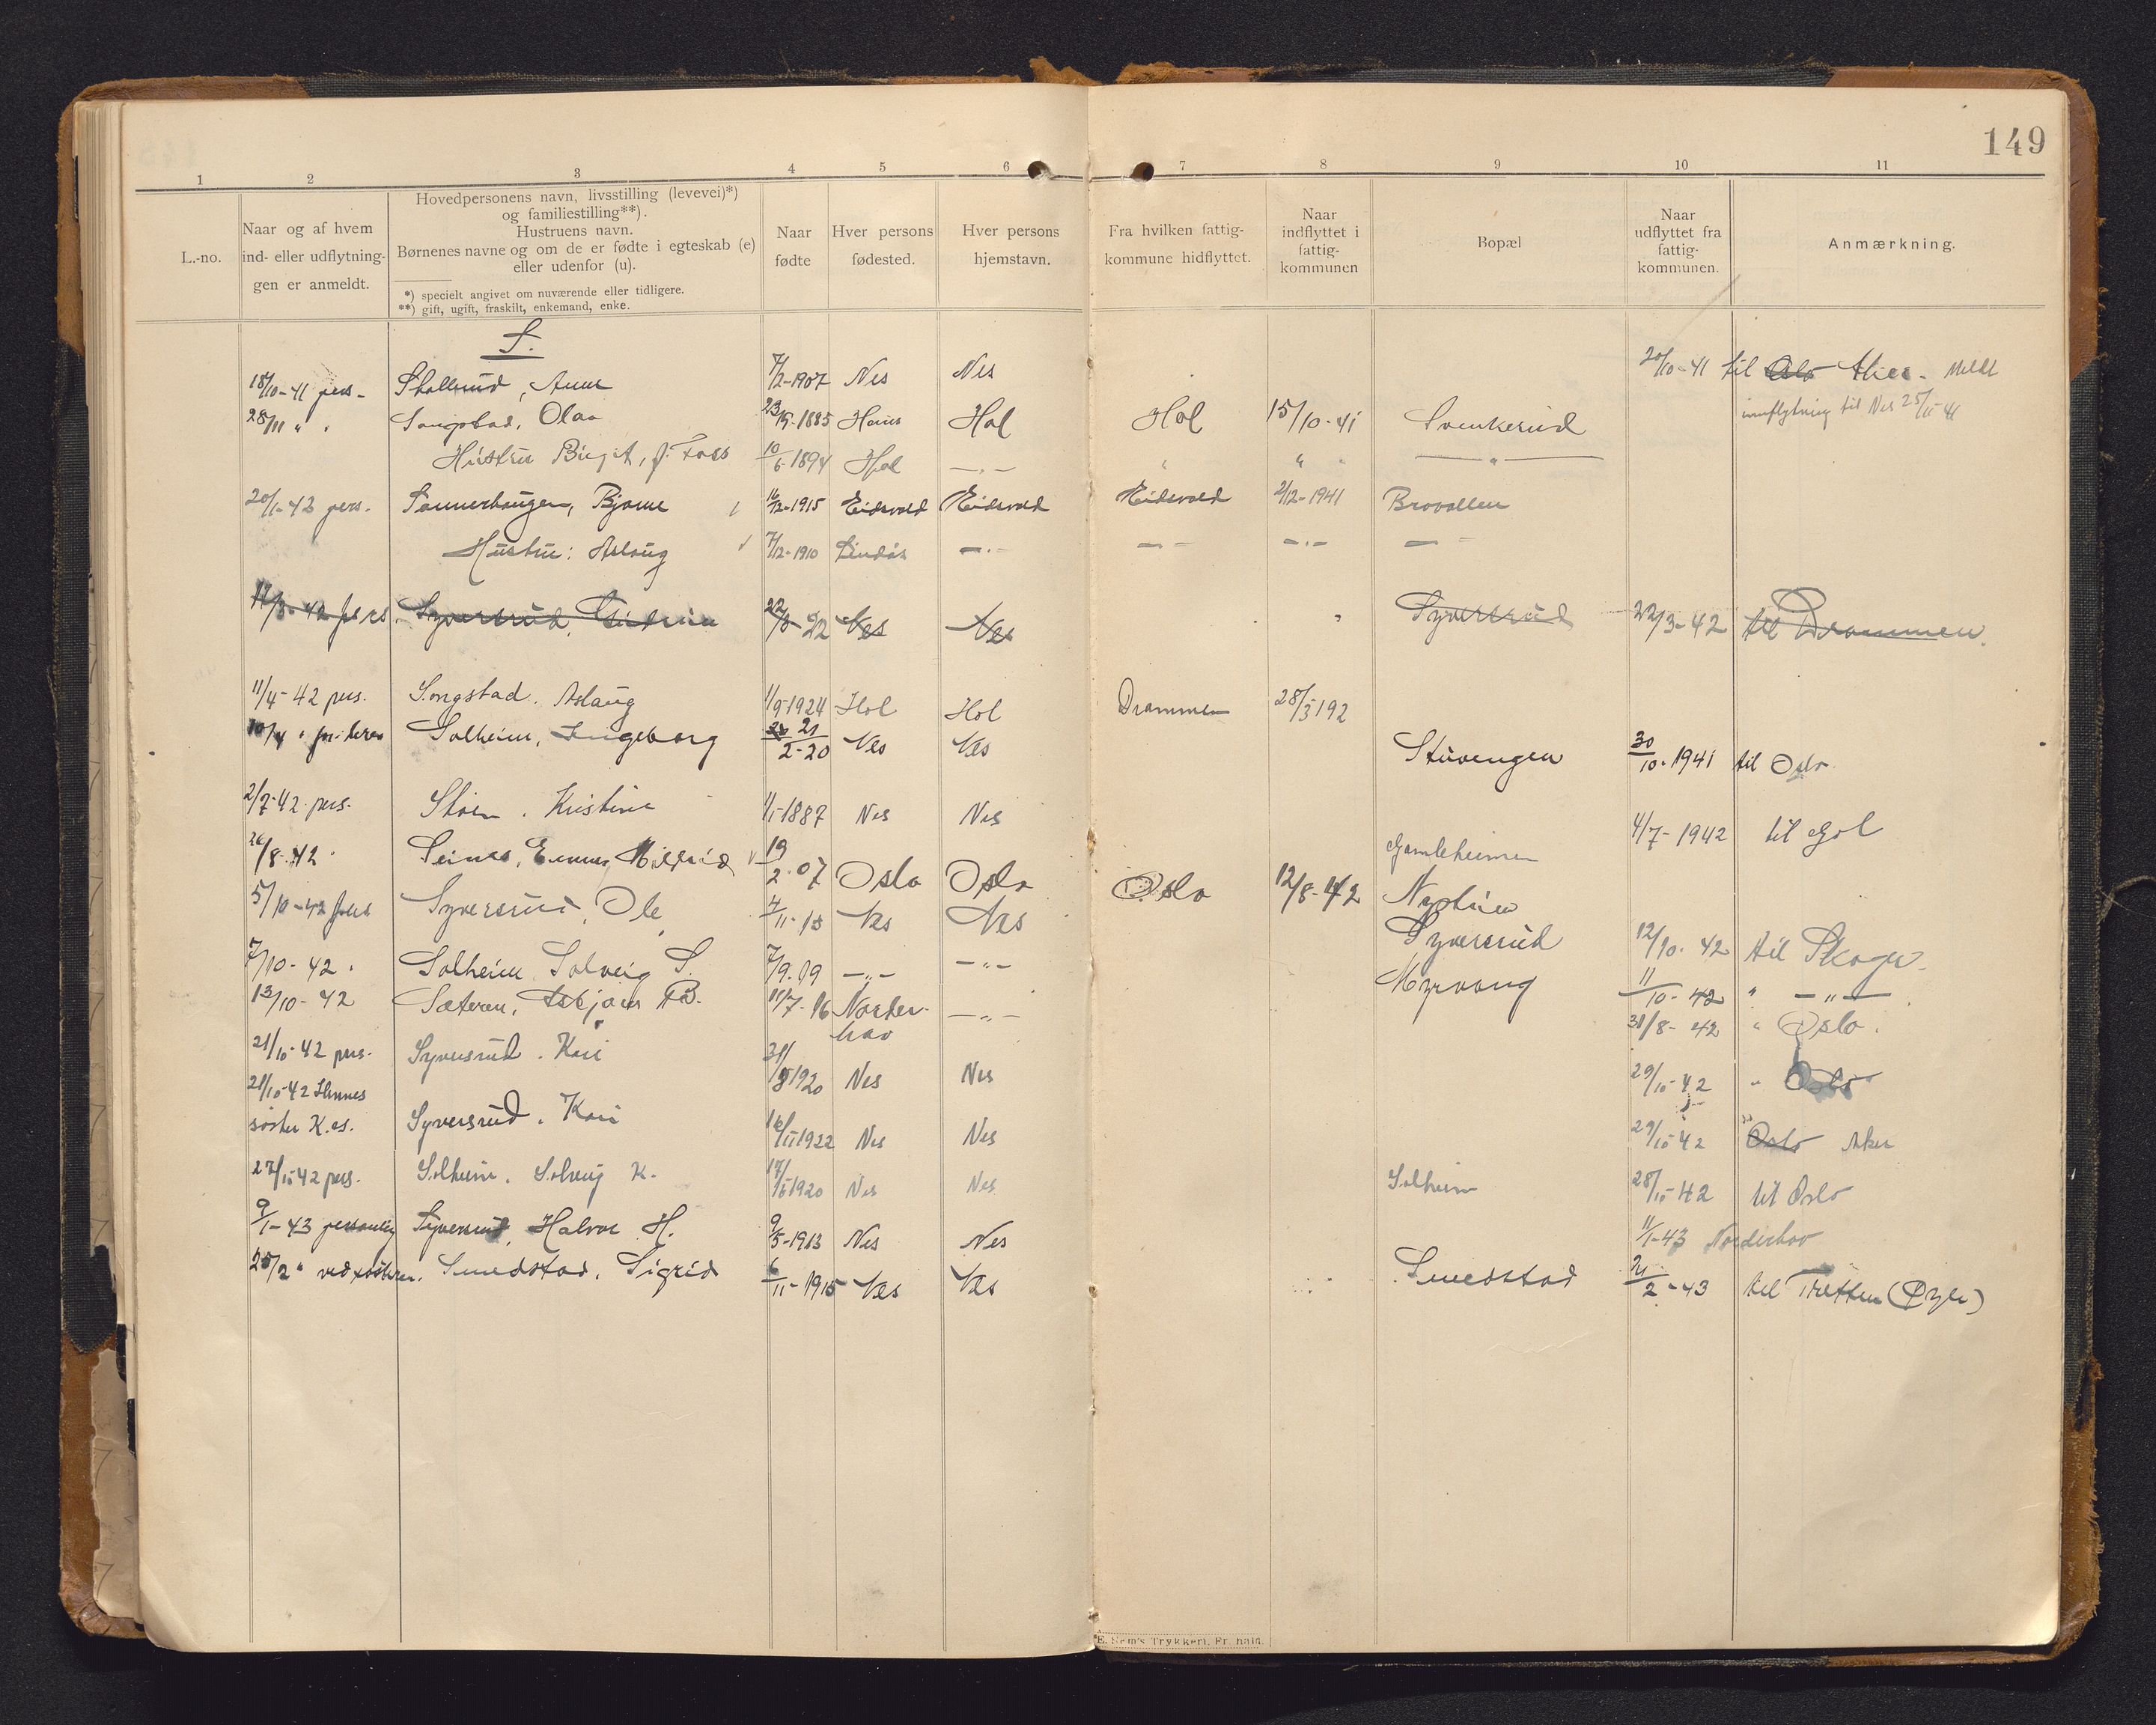 149
1 2 3 4 5 6 7 8 9 10 11
L.-no.
Naar og af hvem
ind- eller udflytnin-
gen er anmeldt.
Hovedpersonens navn, livsstilling (levevei)*)
og familiestilling**).
Hustruens navn.
Børnenes navne og om de er fødte i egteskab (e)
eller udenfor (u).
*) specielt angivet om nuværende eller tidligere.
**) gift, ugift, fraskilt, enkemand, enke.
Naar
fødte
Hver persons
fødested.
Hver persons
hjemstavn.
Fra hvilken fattig-
kommune hidflyttet.
Naar
indflyttet i
fattig-
kommunen
Bopæl
Naar
udflyttet fra
fattig-
kommunen.
Anmærkning.
S.
18/10-41 pers. , Anne 7/2-1907 Nes Nes 20/10-41 til Oslo meldt
innflytning til Nes 25/11-41
28/11 " Olav 1885 Hol Hol 15/10-41 Svenkerud
Hustru Birgit, f. Foss 10/6-1894 Hol —"— " " —"—
20/1-42 pers. Sannerhaugen, Bjarne 1915 Eidsvold Eidsvold Eidsvold 2/12-1941 Brovollen
Hustru: Aslaug 7/12-1910 Lindås —"— —"— —"— —"—
17/3-42 pers. Syversrud, 22/8-22 Nes Nes Syversrud 22/3-42 til Drammen.
11/4-42 pers. Songstad. Aslaug 1/9-1924 Hol Hol Drammen
10/4 " Solheim, Ingeborg 21/2-20 Nes Nes Stuvengen 30/10-1941 til Oslo
2/7-42 pers. Støen. Kristine 1/1-1887 Nes Nes Gamleheimen 4/7-1942 til Gol
26/8-42 19/2-07 Oslo Oslo Oslo 12/8-42
5/10-42 pers Syversrud, Ole 4/11-13 Nes Nes Syversrud 12/10-42 til Skoger.
7/10-42 " Solheim Solveig S. 7/9-09 —"— —"— Myrvang 11/10-42 " —"—
13/10-42 Sæteren, Asbjørn B. 11/7-16 Norder-
hov —"— 31/8-42 " Oslo.
21/10-42 pers. Syversrud. Kari 1920 Nes Nes 29/10-42 " Oslo
21/10-42 Hennes
søster K.es. Syversrud. Kari 16/11 1922 Nes Nes 29/10-42 Oslo Aker
27/10-42 pers. Solheim. Solveig K. 1920 Nes Nes Solheim 28/10-42 til Oslo
9/1-43 personlig Syversrud, Halvor H. 9/5-1913 Nes Nes 11/1-43 Norderhov
25/2 " ved søsteren. Smedstad, Sigrid 6/11-1915 Nes Nes Smedstad 21/2-43 til Tretten (Øyer)
E. Sem's Trykkeri, Fr.hald.